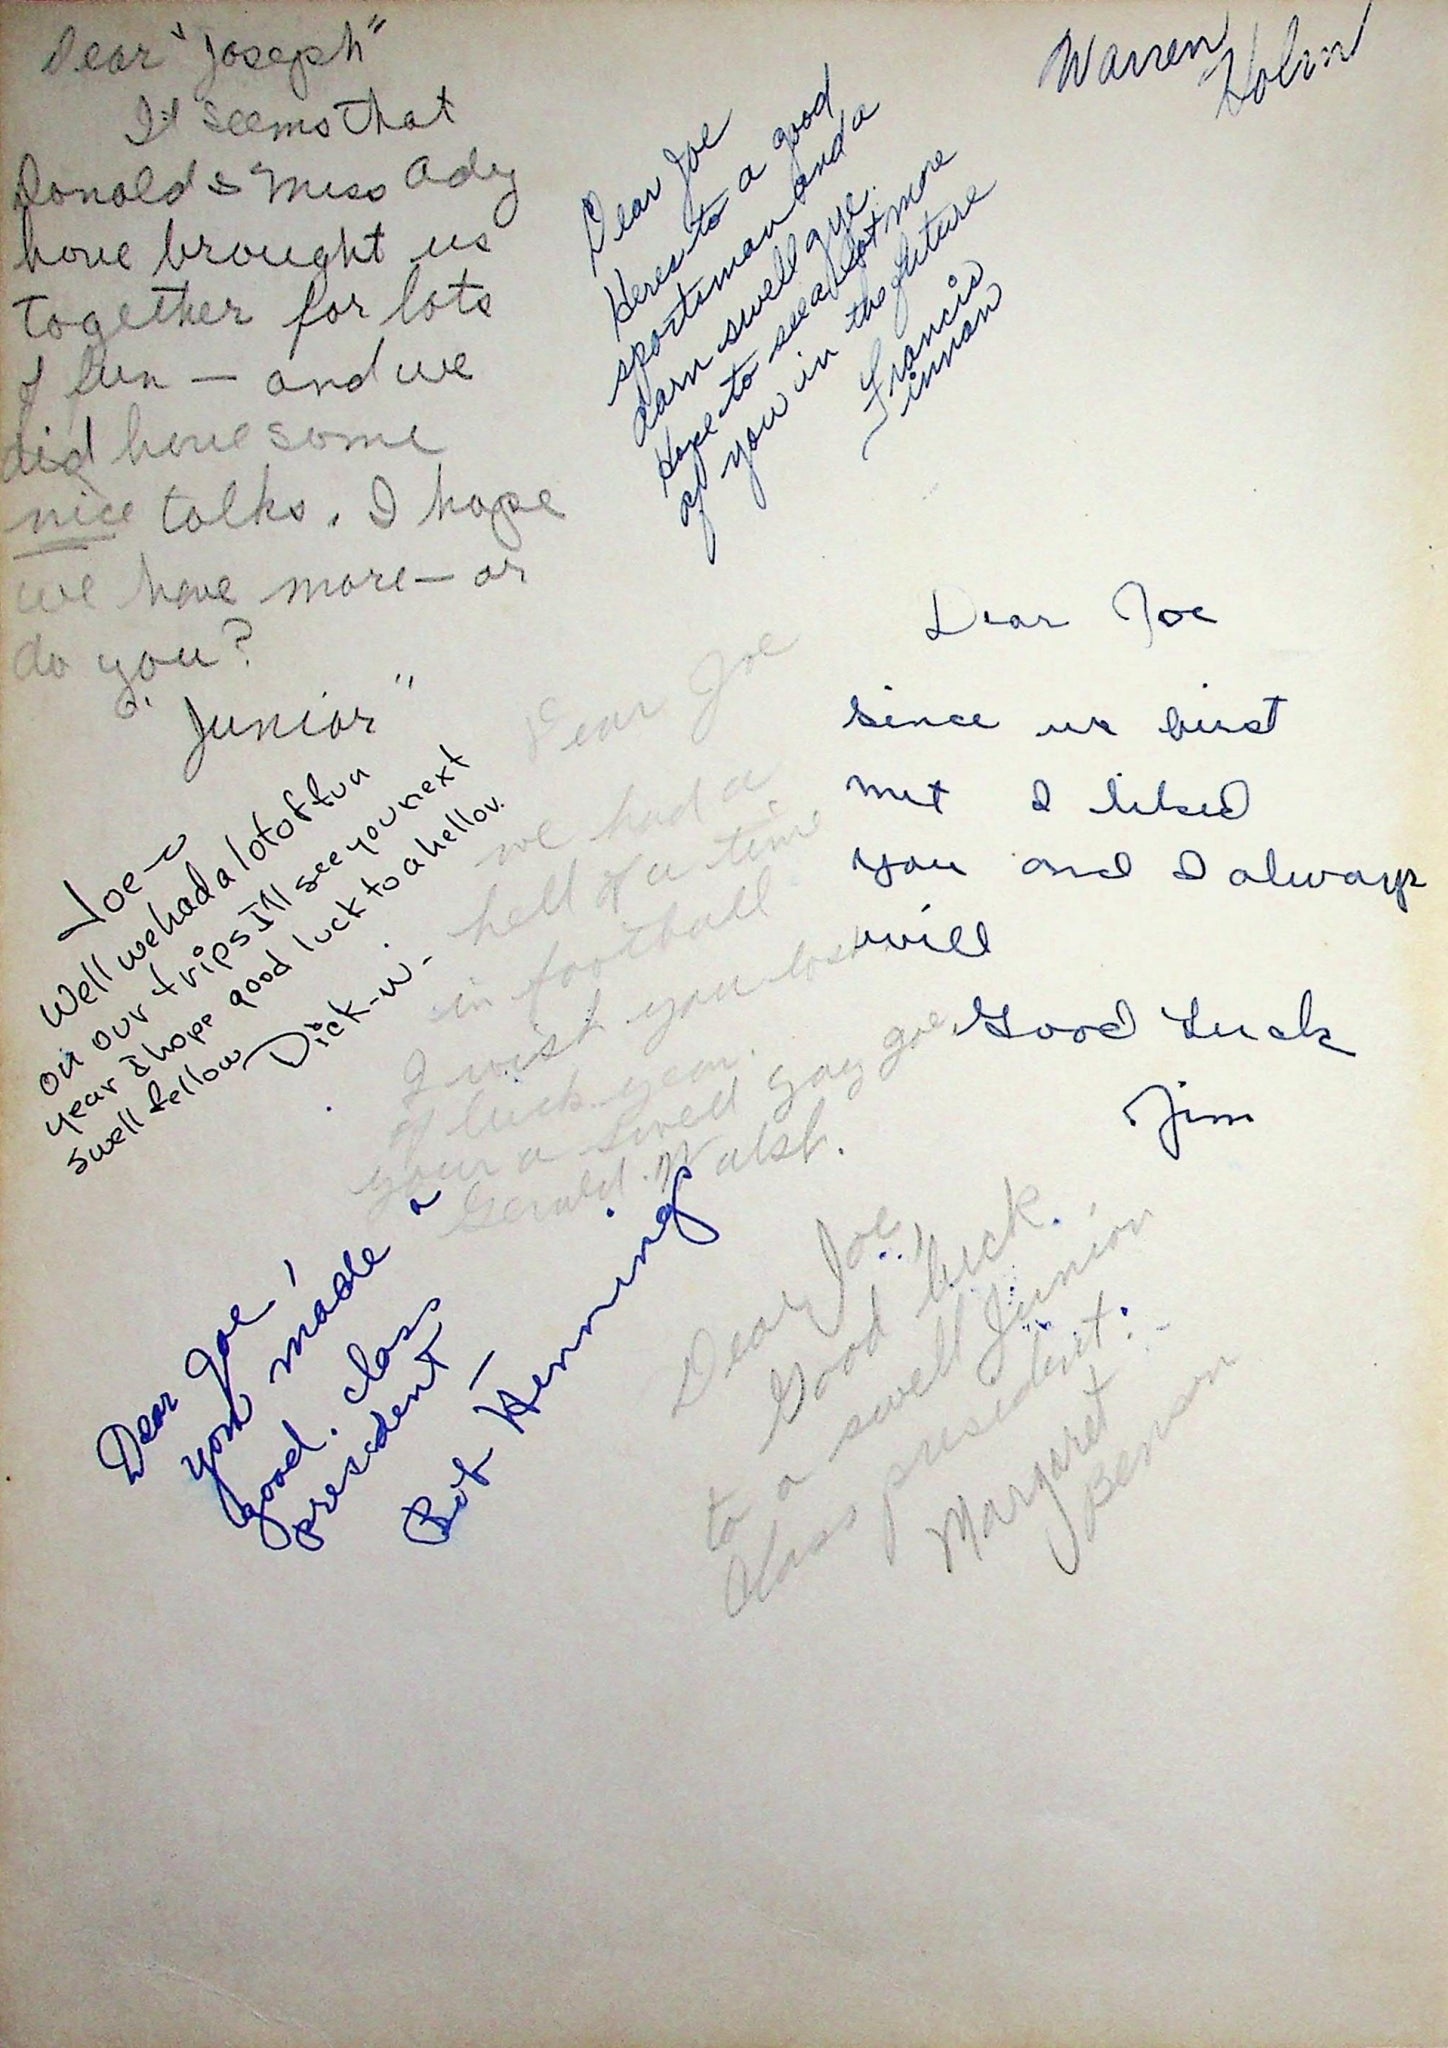 Dear "Joseph"
It seems that
Donald & Miss Ady
have brought us
together for lots
of fun — and we
did have some
nice talks. I hope
we have more — or
do you?
"Junior"
Warren
Dear Joe
Heres to a good
sportsman and a
darn swell guye.
Hope to see a lot more
of you in the future
Francis
innan
Dear Joe
since we first
met I liked
you and I always
will
Good Luck
Jim
Joe —
Well we had a lot of fun
on our trips I'll see you next
year I hope good luck to a hellov.
swell fellow
Dick-W-
Dear Joe
we had a
hell of a time
in football
I wish you lost
of luck year.
your a swell guy Joe,
Gerald Walsh.
Dear Joe!
you made a
good class
president —
Bob Hennings
Dear Joe,
Good luck
to a swell Junion
Class president.
Margaret
Benson